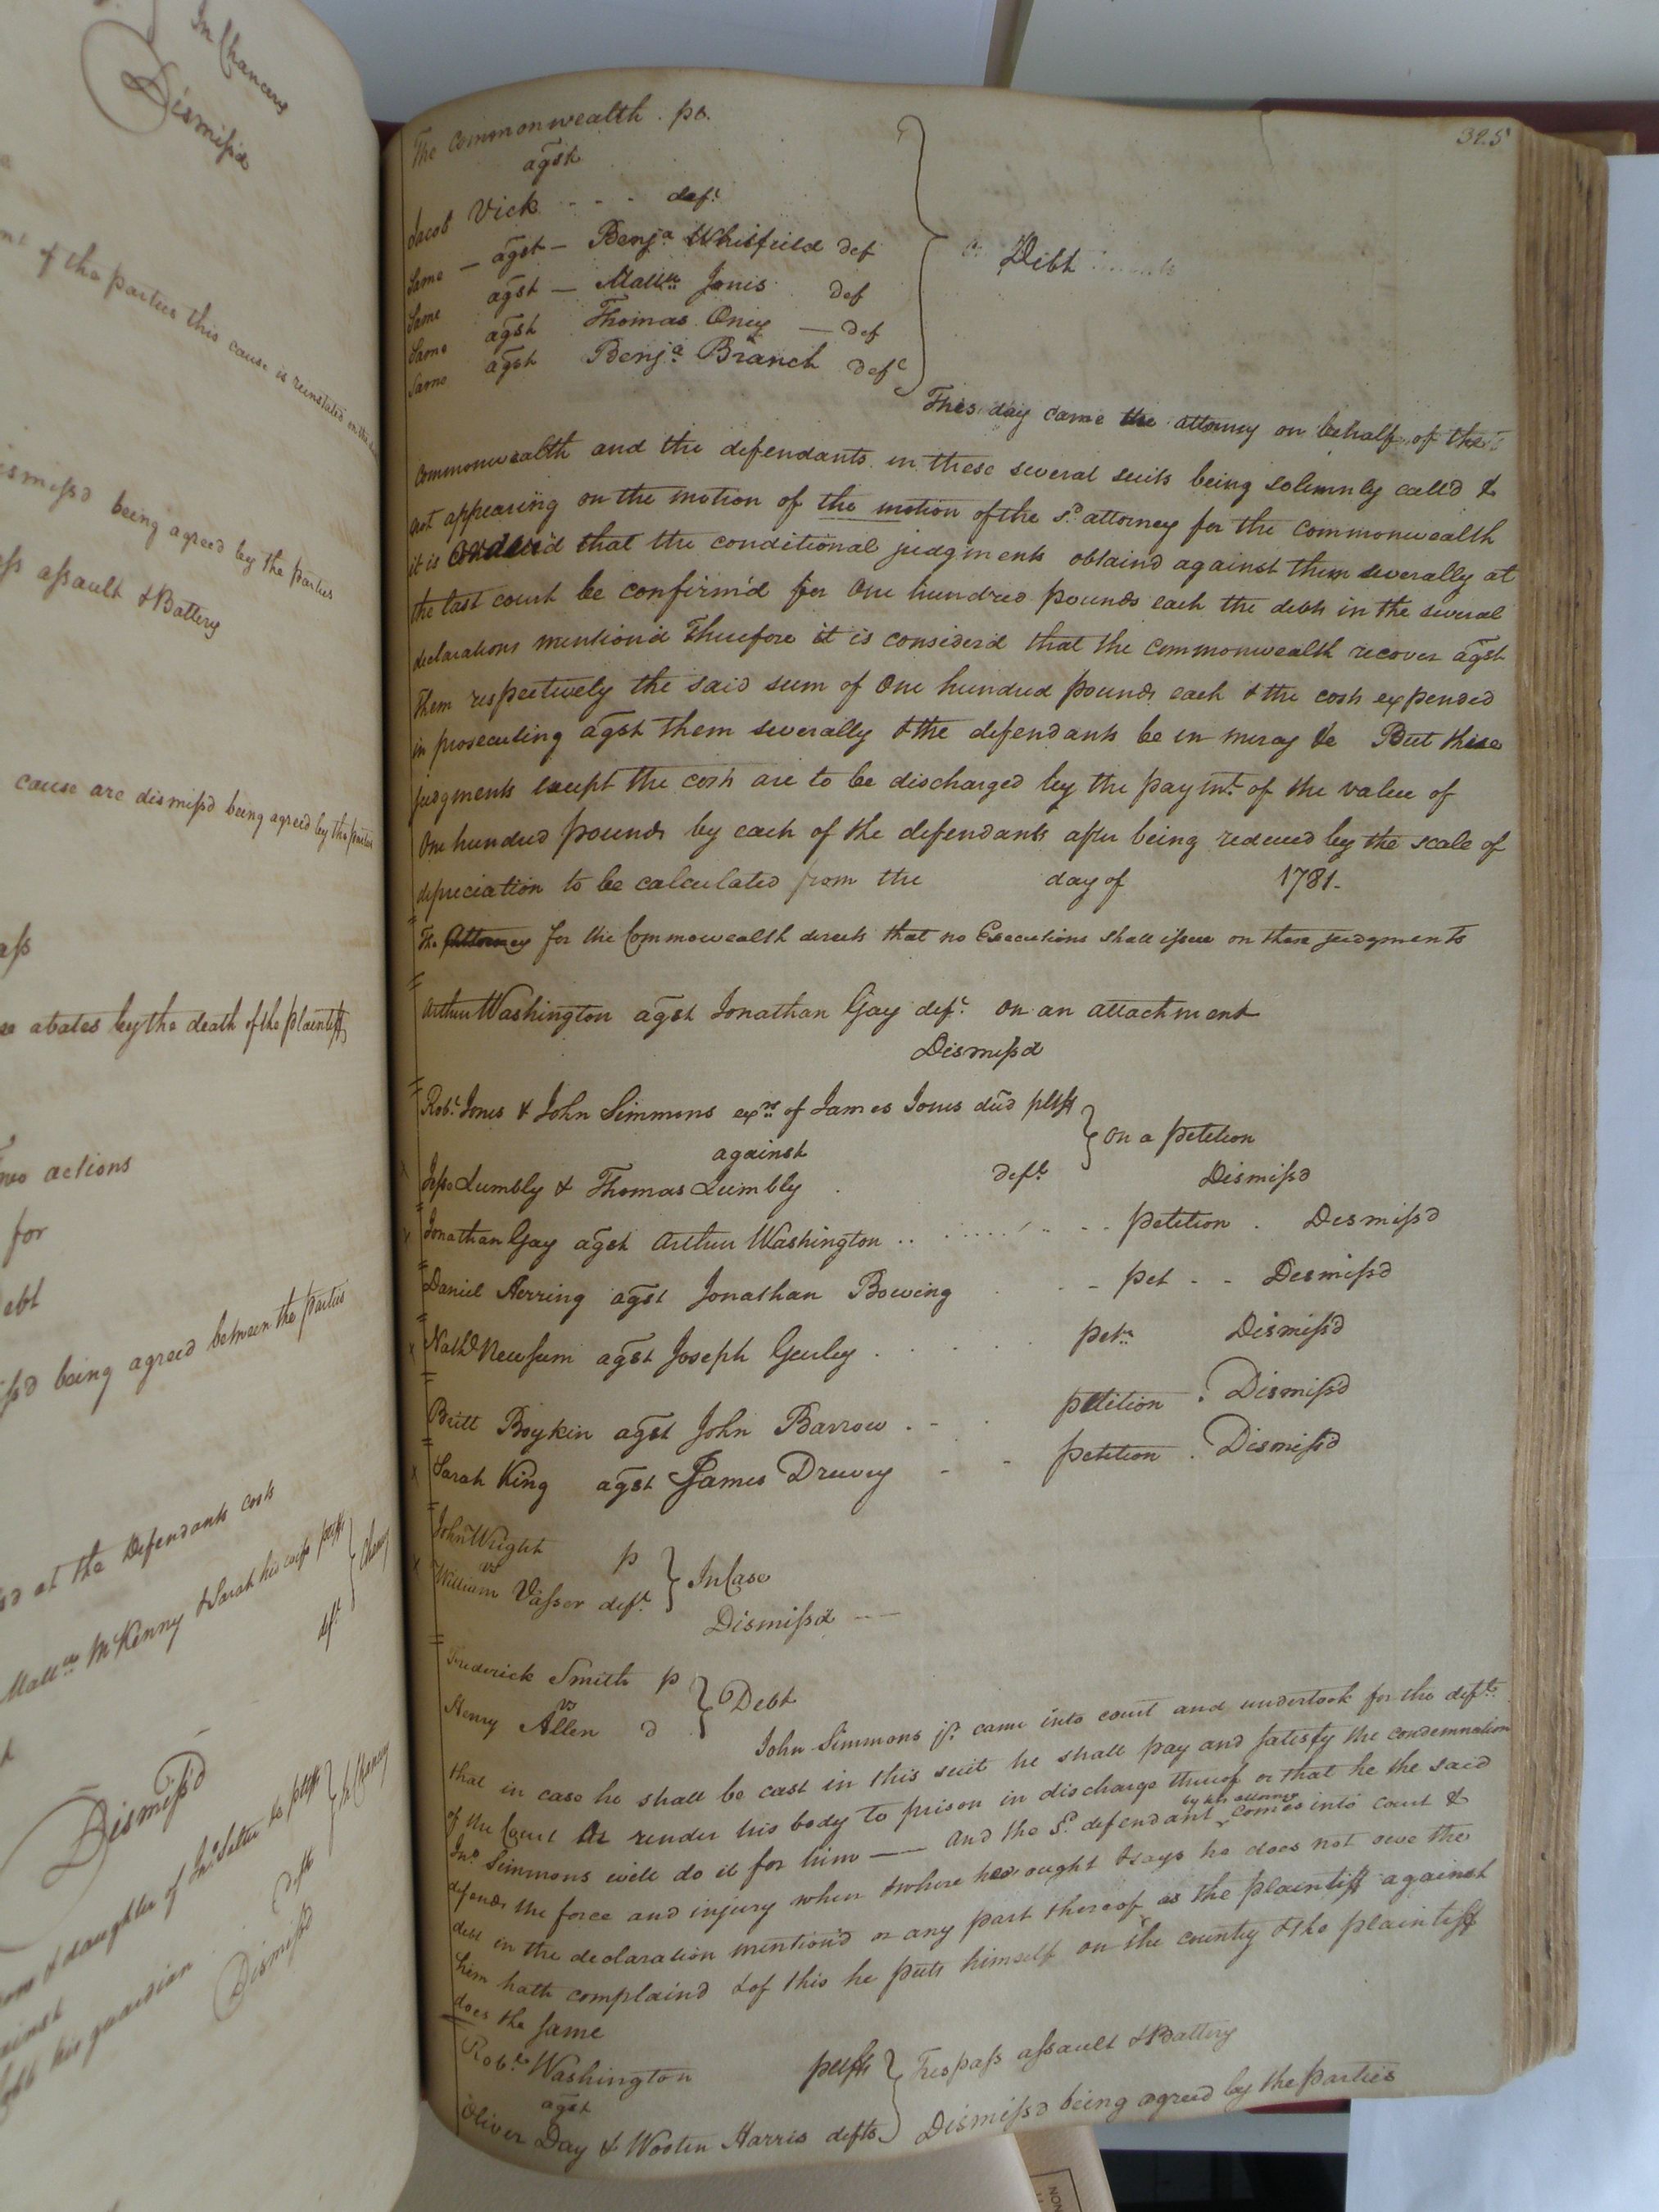 In Chancery
Dismiss'd
of the parties this cause is reinstated on the
ismiss'd being agreed by the parties
ss assault & Battery
cause are dismiss'd being agreed by the parties
ass
abates by the death of the plaintiff
actions
for
ebt
iss'd being agreed between the parties
at the Defendants costs
Matt.w McKenny & Sarah his wife pltfs
Chancy
dft
Dismiss'd
& daughter of Jno.
pltff
In Chancery
ainst
his guardian
dft
Dismiss'd
325
The Commonwealth . pl.
agst
Jacob Vick - - - deft
Same — agst — Benja Whitfield def
Same agst — Mattw. Jones def
Same agst Thomas Oney — def
Same agst Benja. Branch deft
Debt
This day came the attorney on behalf of the
Commonwealth and the defendants in these several suits being solemnly call'd &
not appearing on the motion of the motion of the sd. attorney for the Commonwealth
it is that the conditional judgments obtaind against them severally at
the last court be confirm'd for One hundred pounds each the debts in the several
declarations mention'd Therefore it is consider'd that the Commonwealth recover agst
them respectively the said sum of One hundred pounds each & the costs expended
in prosecuting agst them severally & the defendants be in mercy &c But these
judgments except the costs are to be discharged by the paymt. of the value of
One hundred pounds by each of the defendants after being reduced by the scale of
depreciation to be calculated from the day of 1781.
The Attorney for the Commowealth directs that no Executions shall issue on these judgments
Arthur Washington agst Jonathan Gay deft. on an attachment
Dismiss'd
Robt. Jones & John Simmons exrs. of James Jones dec'd pltfs
against
on a petition
Jesse Lumbly & Thomas Lumbly defts
Dismiss'd
Jonathan Gay agst Arthur Washington . . petition . Dismiss'd
Daniel Herring agst Jonathan Bowing - pet - - Dismiss'd
Nathl. Newsum agst Joseph Gurley . . . . . petn. Dismiss'd
Britt Boykin agst John Barrow . - petition . Dismiss'd
Sarah King agst James Drewry - - petition . Dismiss'd
John Wright p
vs
In Case
William Vasser deft.
Dismiss'd
Frederick Smith p
vs
Debt
Henry Allen d
John Simmons jr. came into court and undertook for the deft.
that in case he shall be cast in this suit he shall pay and satisfy the condemnation
of the Court or render his body to prison in discharge thereof or that he the said
Jno. Simmons will do it for him — And the sd. defendant by his attorney comes into Court &
defends the force and injury when & where he ought & says he does not owe the
debt in the declaration mention'd or any part thereof as the plaintiff against
him hath complain'd & of this he puts himself on the country & the plaintiff
does the same
Robt. Washington pltff
agst
Trespass assault & Battery
Oliver Day & Wooten Harris defts
Dismiss'd being agreed by the parties